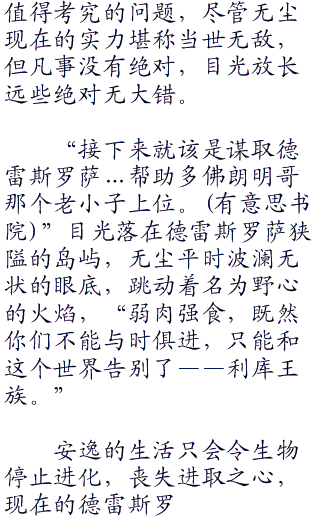 值得考究的问题，尽管无尘
现在的实力堪称当世无敌，
但凡事没有绝对，目光放长
远些绝对无大错。
“接下来就该是谋取德
雷斯罗萨...帮助多佛朗明哥
那个老小子上位。(有意思书
院)”目光落在德雷斯罗萨狭
隘的岛屿，无尘平时波澜无
状的眼底，跳动着名为野心
的火焰，“弱肉强食，既然
你们不能与时俱进，只能和
这个世界告别了——利库王
族。”
安逸的生活只会令生物
停止进化，丧失进取之心，
现在的德雷斯罗